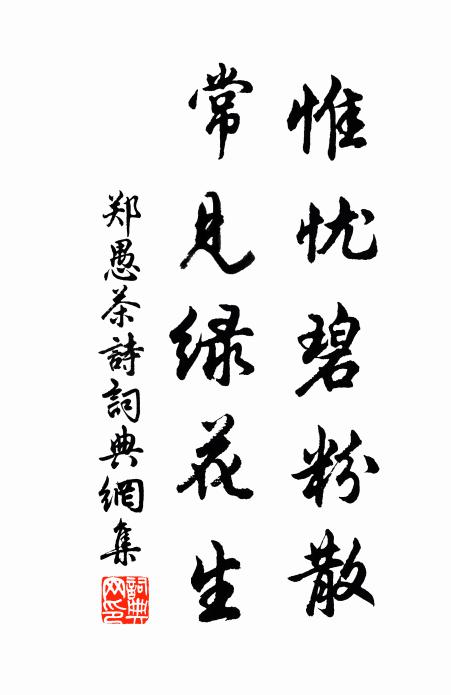 惟忧碧粉散
常见绿花生
郑愚茶詩詞典網集
詞典网印